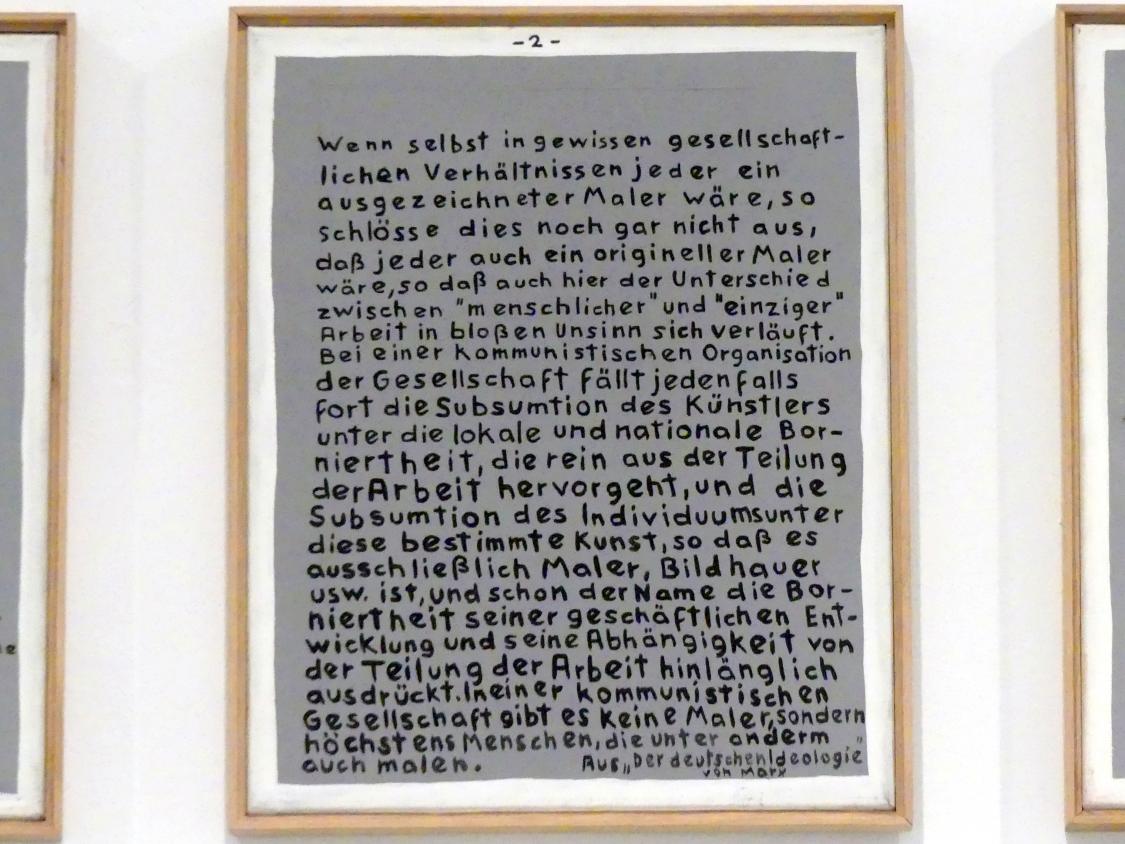 -2-
Wenn selbst in gewissen gesellschaft-
lichen Verhältnissen jeder ein
ausgezeichneter Maler wäre, so
schlösse dies noch gar nicht aus,
daß jeder auch ein origineller Maler
wäre, so daß auch hier der Unterschied
zwischen "menschlicher" und "einziger"
Arbeit in bloßen Unsinn sich verläuft.
Bei einer kommunistischen Organisation
der Gesellschaft fällt jedenfalls
fort die Subsumtion des Künstlers
unter die lokale und nationale Bor-
niertheit, die rein aus der Teilung
der Arbeit hervorgeht, und die
Subsumtion des Individuums unter
diese bestimmte Kunst, so daß es
ausschließlich Maler, Bildhauer
usw. ist, und schon der Name die Bor-
niertheit seiner geschäftlichen Ent-
wicklung und seine Abhängigkeit von
der Teilung der Arbeit hinlänglich
ausdrückt. In einer kommunistischen
Gesellschaft gibt es keine Maler, sondern
höchstens Menschen, die unter anderm
auch malen. Aus „Der deutschen Ideologie"
von Marx
e